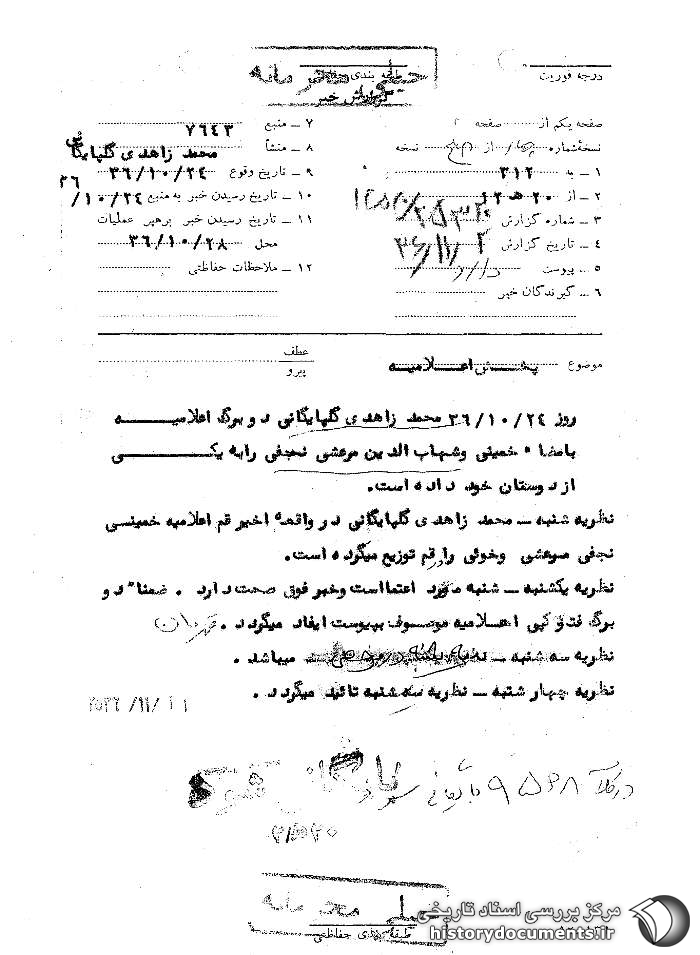 خیلی محرمانه
درجه فوریت
طبقه بندی
گزارش خبر
صفحه یکم از صفحه
نسخه شماره چهار از نسخه
۱ - به ۳۱۲
۲ - از ۲۰ ه ۱۲
۳ - شماره گزارش
۴ - تاریخ گزارش
۵ - پیوست دارد
۶ - گیرندگان خبر
۷ - منبع ۷۶۴۳
۸ - منشأ محمد زاهدی گلپایگانی
۹ - تاریخ وقوع ۳۶/۱۰/۲۴
۱۰ - تاریخ رسیدن خبر به منبع ۳۶/۱۰/۲۴
۱۱ - تاریخ رسیدن خبر برهبر عملیات
محل ۳۶/۱۰/۲۸
۱۲ - ملاحظات حفاظتی
موضوع پخش اعلامیه
عطف
پیرو
روز ۳۶/۱۰/۲۴ محمد زاهدی گلپایگانی دو برگ اعلامیه
بامضاء خمینی وشهاب الدین مرعشی نجفی رابه یکی
از دوستان خود داده است.
نظریه شنبه - محمد زاهدی گلپایگانی در واقعه اخیر قم اعلامیه خمینی
نجفی مرعشی وخوئی را در قم توزیع میکرده است.
نظریه یکشنبه - شنبه مورد اعتمااست وخبر فوق صحت دارد . ضمنا" دو
برگ فتوکپی اعلامیه موصوف بپیوست ایفاد میگردد . تهران
نظریه سه شنبه - میباشد .
نظریه چهار شنبه - نظریه سه شنبه تائید میگردد .
۲۵۳۶/۱۱/
در کلاسه ۹۵۶۸ بایگانی
خیلی محرمانه
طبقه بندی حفاظتی
مرکز بررسی اسناد تاریخی
historydocuments.ir